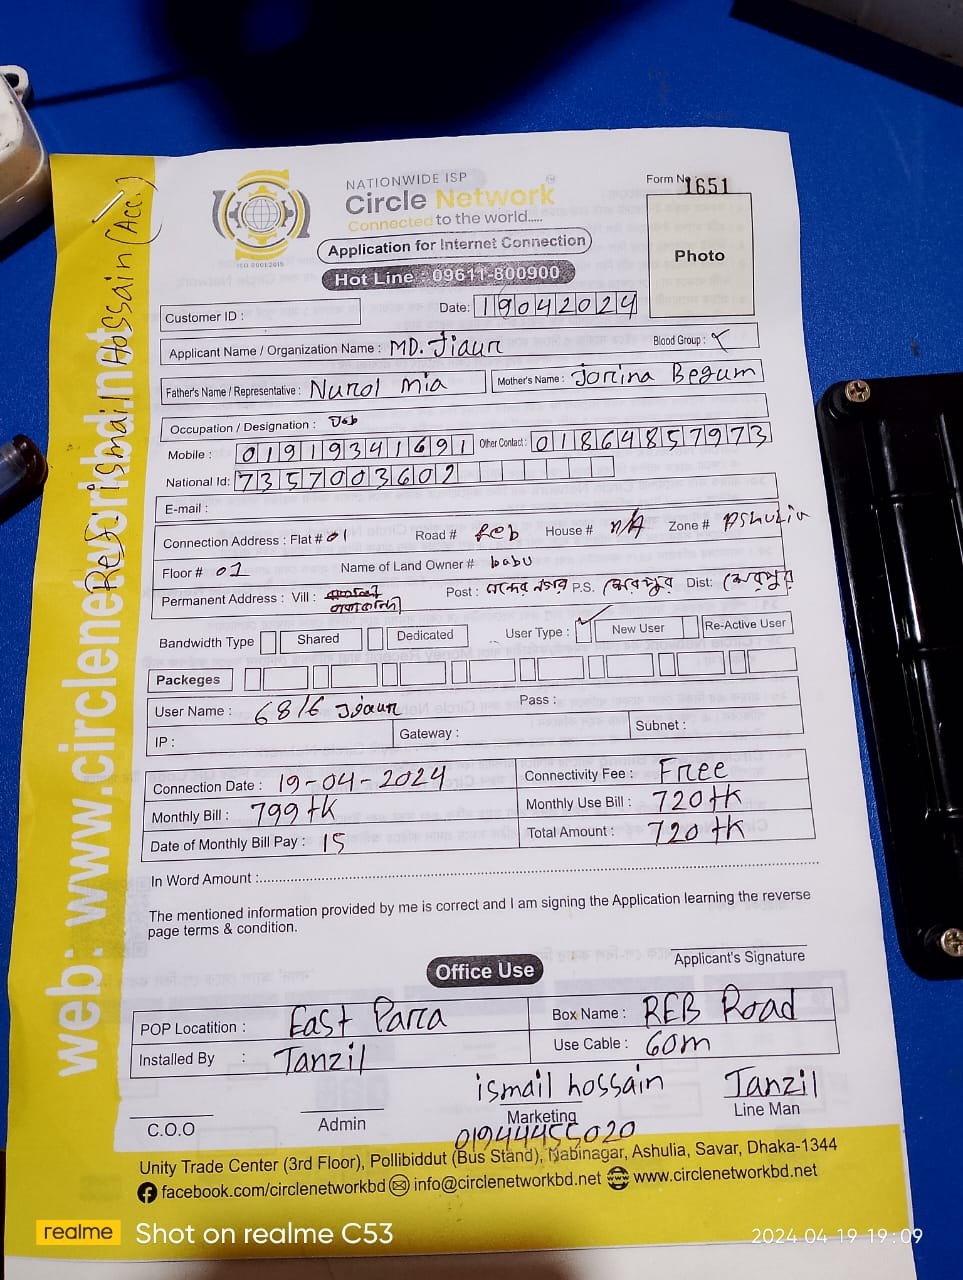 NATIONWIDE ISP
Circle Network
Connected to the world.....
Application for Internet Connection
Hot Line : 09611-800900
ISO 9001:2015
Form No
1651
Photo
web: www.circlenetworkbd.net
Hossain (Acc.)
Customer ID :
Date: 19042024
Applicant Name / Organization Name : MD. Jiaur
Blood Group :
Father's Name / Representative : Nurol mia
Mother's Name : Jorina Begum
Occupation / Designation : Job
Mobile : 01919341691 Other Contact : 01864857973
National Id: 7357003602
E-mail :
Connection Address : Flat # 01 Road # Reb House # n/A Zone # Ashulia
Floor # 01 Name of Land Owner # babu
Permanent Address : Vill : Post : P.S. শেরপুর Dist: শেরপুর
Bandwidth Type Shared Dedicated User Type : ✓ New User Re-Active User
Packeges
User Name : 6816 Jiaur Pass :
IP : Gateway : Subnet :
Connection Date : 19-04-2024 Connectivity Fee : Free
Monthly Bill : 799 tk Monthly Use Bill : 720 tk
Date of Monthly Bill Pay : 15 Total Amount : 720 tk
In Word Amount :
The mentioned information provided by me is correct and I am signing the Application learning the reverse
page terms & condition.
Applicant's Signature
Office Use
POP Locatition : East Parra Box Name : REB Road
Installed By : Tanzil Use Cable : 60m
ismail hossain Tanzil
C.O.O Admin Marketing Line Man
01944455020
Unity Trade Center (3rd Floor), Pollibiddut (Bus Stand), Nabinagar, Ashulia, Savar, Dhaka-1344
facebook.com/circlenetworkbd info@circlenetworkbd.net www.circlenetworkbd.net
realme Shot on realme C53
2024 04 19 19:09